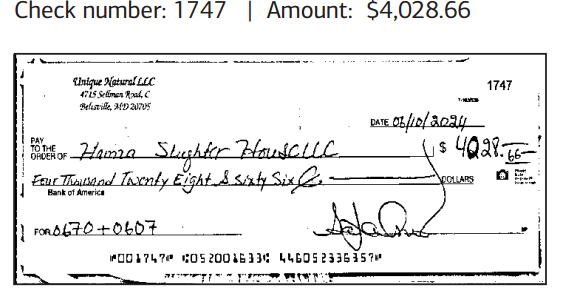 Check number: 1747 | Amount: $4,028.66
Unique Natural LLC
1747
4715 Sellman Road, C
Beltsville, MD 20705
DATE 06/10/2024
PAY
TO THE
ORDER OF Hamza Slughter House LLC $ 4028.66
Four Thousand Twenty Eight & Sixty Six C. DOLLARS
Bank of America
FOR 0670+0607
⑈001747⑈ ⑆052001633⑆ 446052336357⑈